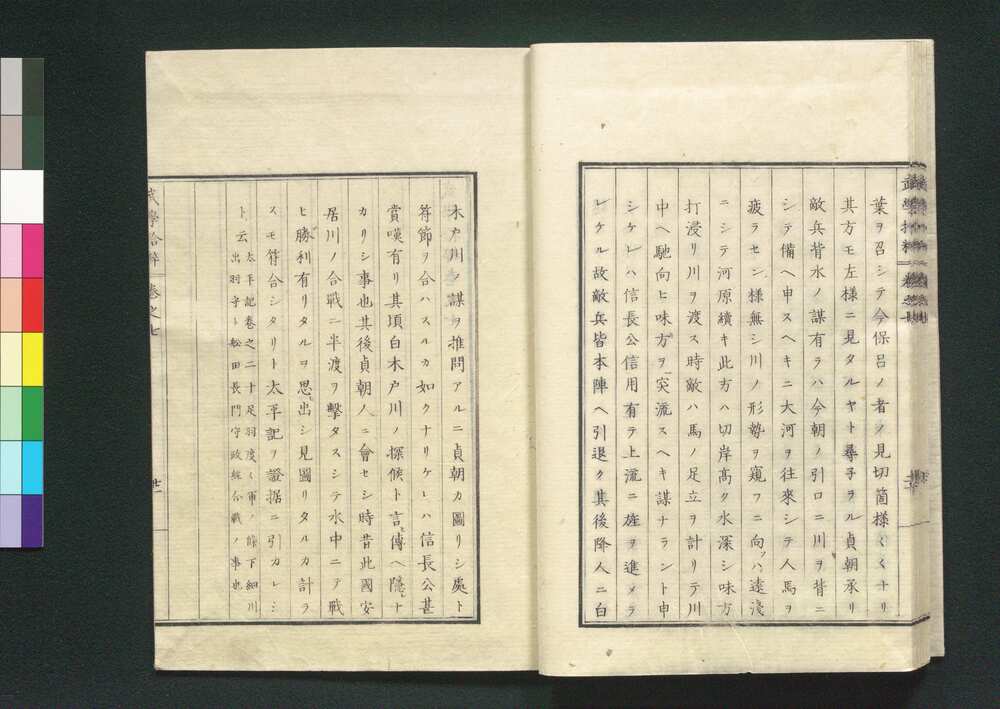 葉ヲ召シテ今保呂ノ者ノ見切箇様〱〱ナリ
其方モ左様ニ見タルヤト尋子ヲル貞朝承リ
敵兵背水ノ謀有ラハ今朝ノ引口ニ川ヲ背ニ
シテ備ヘ申スヘキニ大河ヲ往來シテ人馬ヲ
疲ラセン様無シ川ノ形勢ヲ窺フニ向ノハ遠淺
ニシテ河原續キ此方ハ切岸髙ク水深シ味方
打浸リ川ヲ渡ス時敵ハ馬ノ足立ヲ計リテ川
中ヘ馳向ヒ味方ヲ突流スヘキ謀ナラント申
シケレハ信長公信用有テ上流ニ旌ヲ進メラ
レケル故敵兵皆本陣ヘ引退ク其後降人ニ白
木戸川ノ謀ヲ推問アルニ貞朝カ圖リシ處ト
符節ヲ合ハスルカ如クナリケレハ信長公甚
賞嘆有リ其頃白木戸川ノ探候ト言傳ヘ隱レナ
カリシ事也其後貞朝ノニ會セシ時昔此國安
居川ノ合戰ニ半渡ヲ擊タスシテ水中ニテ戰
ヒ勝利有リタルヲ思出シ見圖リタルカ計ラ
スモ符合シタリト太平記ヲ證据ニ引カレシ
ト云
太平記卷之二十足羽度〱軍ノ條下細川
出羽守ト松田長門守政經合戰ノ事也
武學拾粹
卷之七
廿一